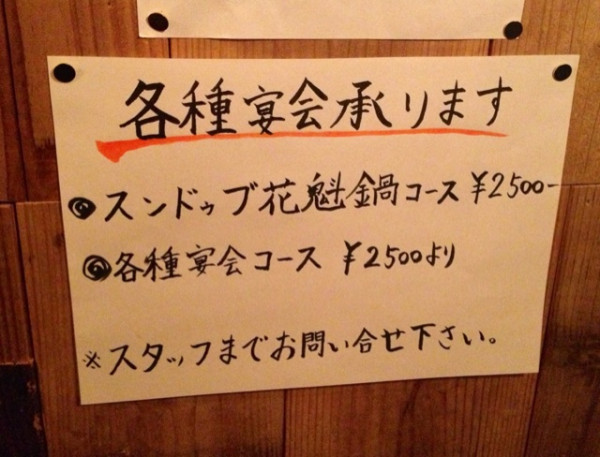 各種宴会承ります
◉スンドゥブ花魁鍋コース ¥2500-
◉各種宴会コース ¥2500より
※スタッフまでお問い合せ下さい。